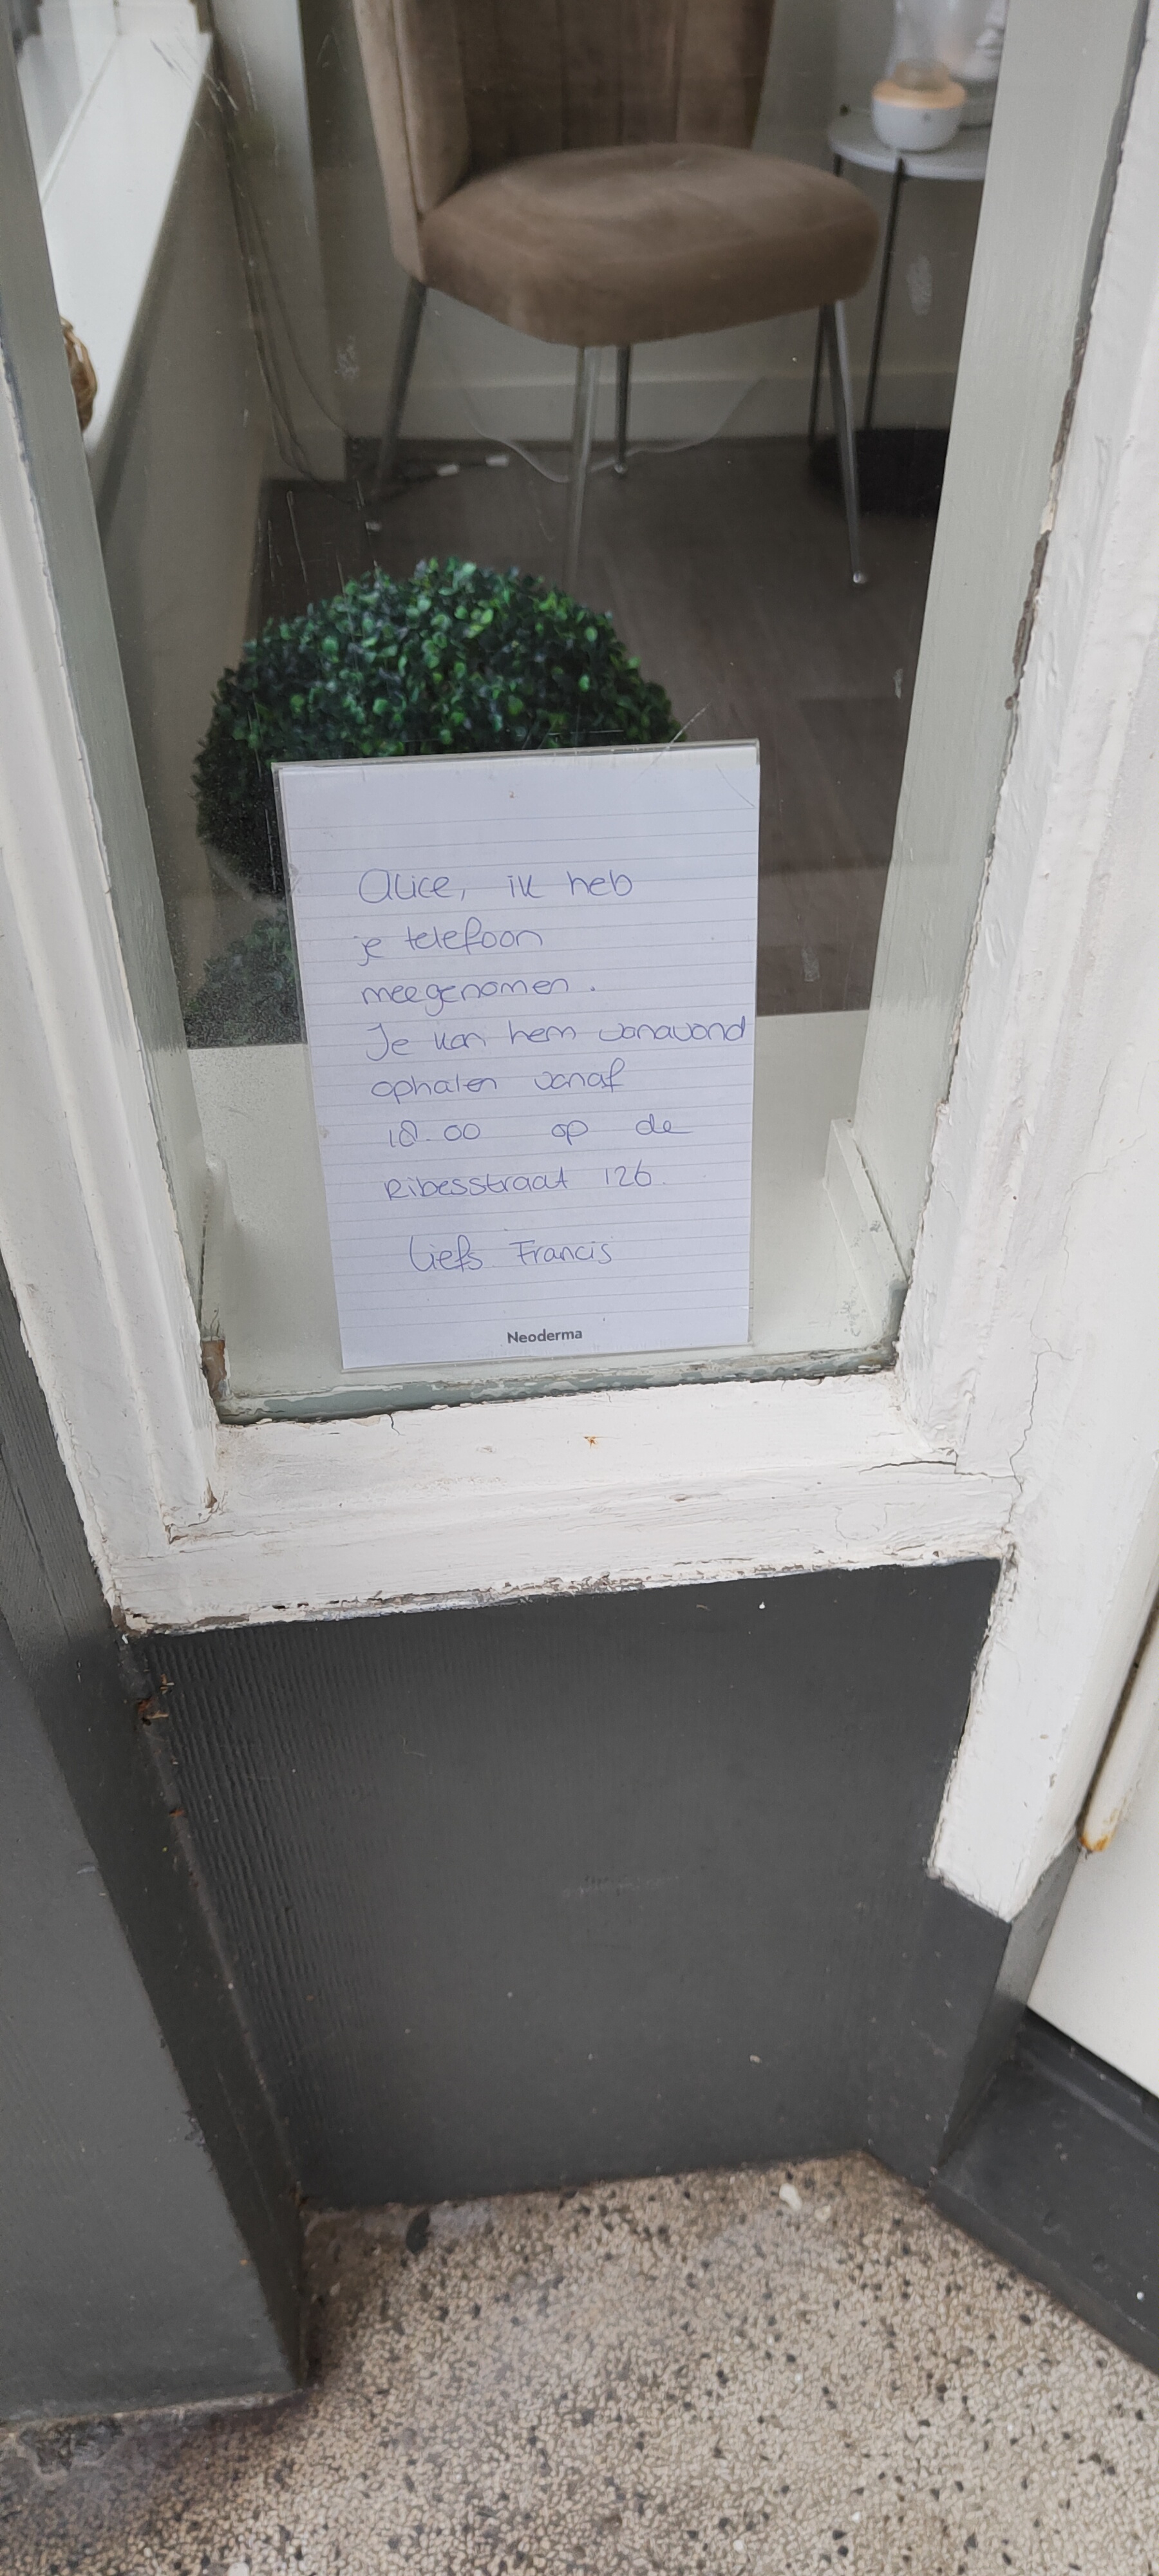 Alice, ik heb
je telefoon
meegenomen.
Je kan hem vanavond
ophalen vanaf
18.00 op de
Ribesstraat 126.
liefs Francis
Neoderma